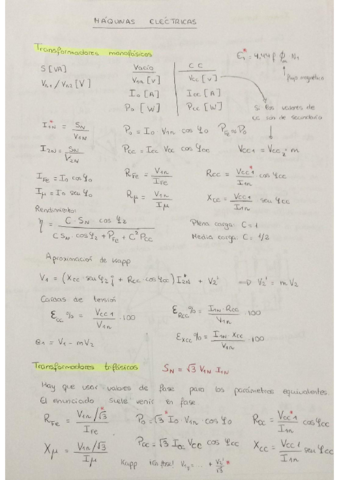 MÁQUINAS ELÉCTRICAS
Transformadores monofásicos
E₁ = 4,44 f ϕ N₁
flujo magnético
S [VA] Vacío CC
V₁ₙ / V₂ₙ [V] V₁ₙ [V] Vcc [V]
I₀ [A] Icc [A]
P₀ [W] Pcc [W]
Si los valores de
CC son de secundario
I₁ₙ = Sₙ / V₁ₙ P₀ = I₀ V₁ₙ cos φ₀
Vcc₁ = Vcc₂ · m
I₂ₙ = Sₙ / V₂ₙ Pcc = Icc Vcc cos φcc
I_Fe = I₀ cos φ₀ R_Fe = V₁ₙ / I_Fe Rcc = Vcc₁ / I₁ₙ cos φcc
Iμ = I₀ sen φ₀ Rμ = V₁ₙ / Iμ Xcc = Vcc₁ / I₁ₙ sen φcc
Rendimiento
η = C · Sₙ cos φ₂ / C Sₙ cos φ₂ + P_Fe + C² Pcc
Plena carga: C = 1
Media carga: C = 1/2
Aproximación de Kapp
V₁ = (Xcc sen φ₂ + Rcc cos φcc) I₂ₙ + V₂' ⇒ V₂' = m V₂
Caídas de tensión
εcc % = Vcc₁ / V₁ₙ · 100 εRcc % = I₁ₙ Rcc / V₁ₙ · 100
εXcc % = I₁ₙ Xcc / V₁ₙ · 100
V₁ - m V₂
Transformadores trifásicos Sₙ = √3 V₁ₙ I₁ₙ
Hay que usar valores de fase para los parámetros equivalentes.
El enunciado suele venir en fase
R_Fe = V₁ₙ/√3 / I_Fe P₀ = √3 I₀ V₁ₙ cos φ₀ Rcc = Vcc₁ / I₁ₙ cos φcc
Xμ = V₁ₙ/√3 / Iμ Pcc = √3 Icc Vcc cos φcc Xcc = Vcc₁ / I₁ₙ sen φcc
Kapp